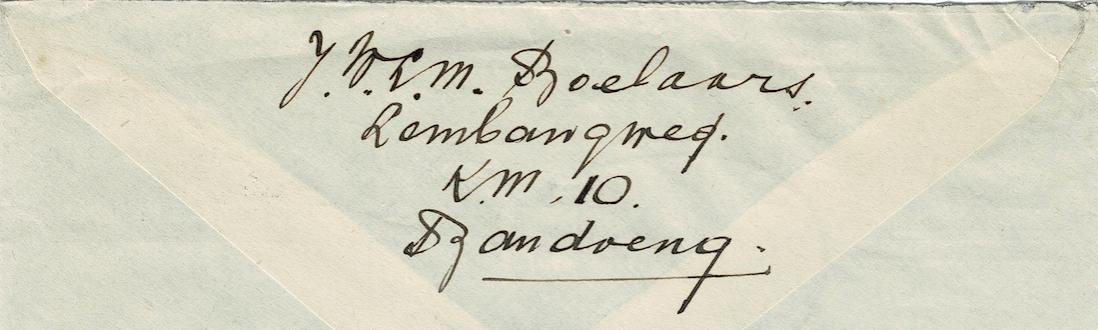 J. W. L. M. Boelaars.
Lembangweg.
K.M. 10.
Bandoeng.